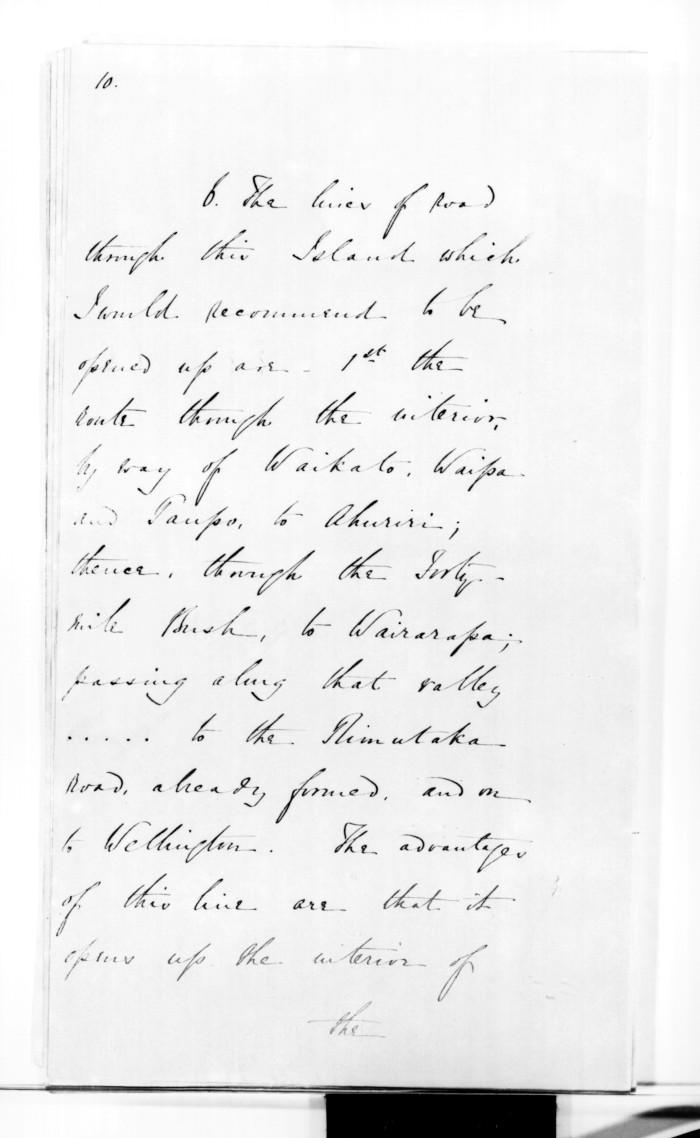 10.
6. The lines of Road
through this Island which
I would recommend to be
opened up are - 1st the
route through the interior,
by way of Waikato, Waipa
and Taupo, to Ahuriri;
thence, through the Forty-
mile Bush, to Wairarapa;
passing along that valley
..... to the Rimutaka
Road, already formed, and on
to Wellington. The advantages
of this line are that it
opens up the interior of
the